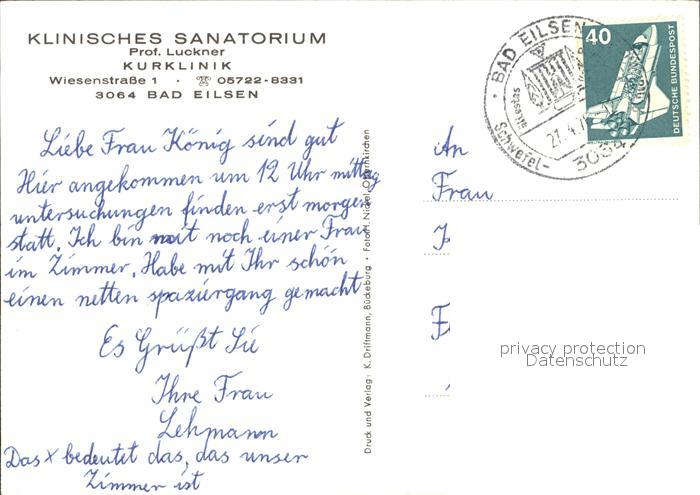 KLINISCHES SANATORIUM
Prof. Luckner
KURKLINIK
Wiesenstraße 1 · ☏ 05722-8331
3064 BAD EILSEN
Liebe Frau König sind gut
Hier angekommen um 12 Uhr mittag
untersuchungen finden erst morgen
statt. Ich bin mit noch einer Frau
im Zimmer. Habe mit Ihr schön
einen netten spaziergang gemacht
Es Grüßt Sie
Ihre Frau
Lehmann
Das x bedeutet das, das unser
Zimmer ist
Druck und Verlag: K. Driftmann, Bückeburg • Foto: H. Nickel,
An
Frau
BAD EILSEN
Schwefel-
40
DEUTSCHE BUNDESPOST
privacy protection
Datenschutz